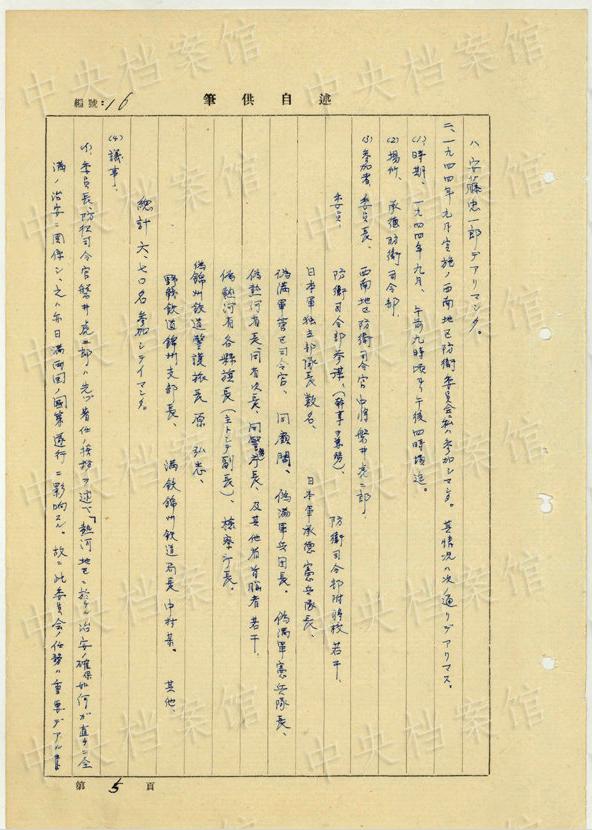 編號：16
述自供筆
ハ安藤忠一郎デアリマシタ。
二、一九四四年九月実施ノ西南地区防衛委員会ニ私ハ参加シマシタ。其情況ハ次ノ通リデアリマス。
(1) 時期、一九四四年九月、午前九時頃ヨリ午後四時頃迄。
(2) 場所、承徳防衛司令部、
(3) 参加者、委員長、西南地区防衛司令官中将盤井虎二郎
委員、防衛司令部参謀、(幹事ヲ兼務)、防衛司令部附将校若干、
日本軍独立部隊長数名、日本軍承徳憲兵隊長、
偽満軍管区司令官、同顧問、偽満軍兵団長、偽満軍憲兵隊長、
偽熱河省長同省次長、同警ム庁長、及其他省首脳者若干、
偽熱河省各縣旗長(主トシテ副長)、検察庁長、
偽錦州鉄道警護旅長原弘志、
野戦鉄道錦州支部長、満鉄錦州鉄道局長中村某。其他、
總計六、七〇名参加シテイマシタ。
(4) 議事、
イ、委員長、防衛司令官盤井虎二郎ハ先ヅ着任ノ挨拶ヲ述ベ「熱河地区ニ於ケル治安ノ確保如何ガ直チニ全
満ノ治安ニ関係シ、之ハ亦日満両国ノ國策遂行ニ影响スル。故ニ此委員会ノ任務ハ重要デアル事
第5頁
中央档案馆
中央档案馆
中央档案馆
中央档案馆
中央档案馆
中央档案馆